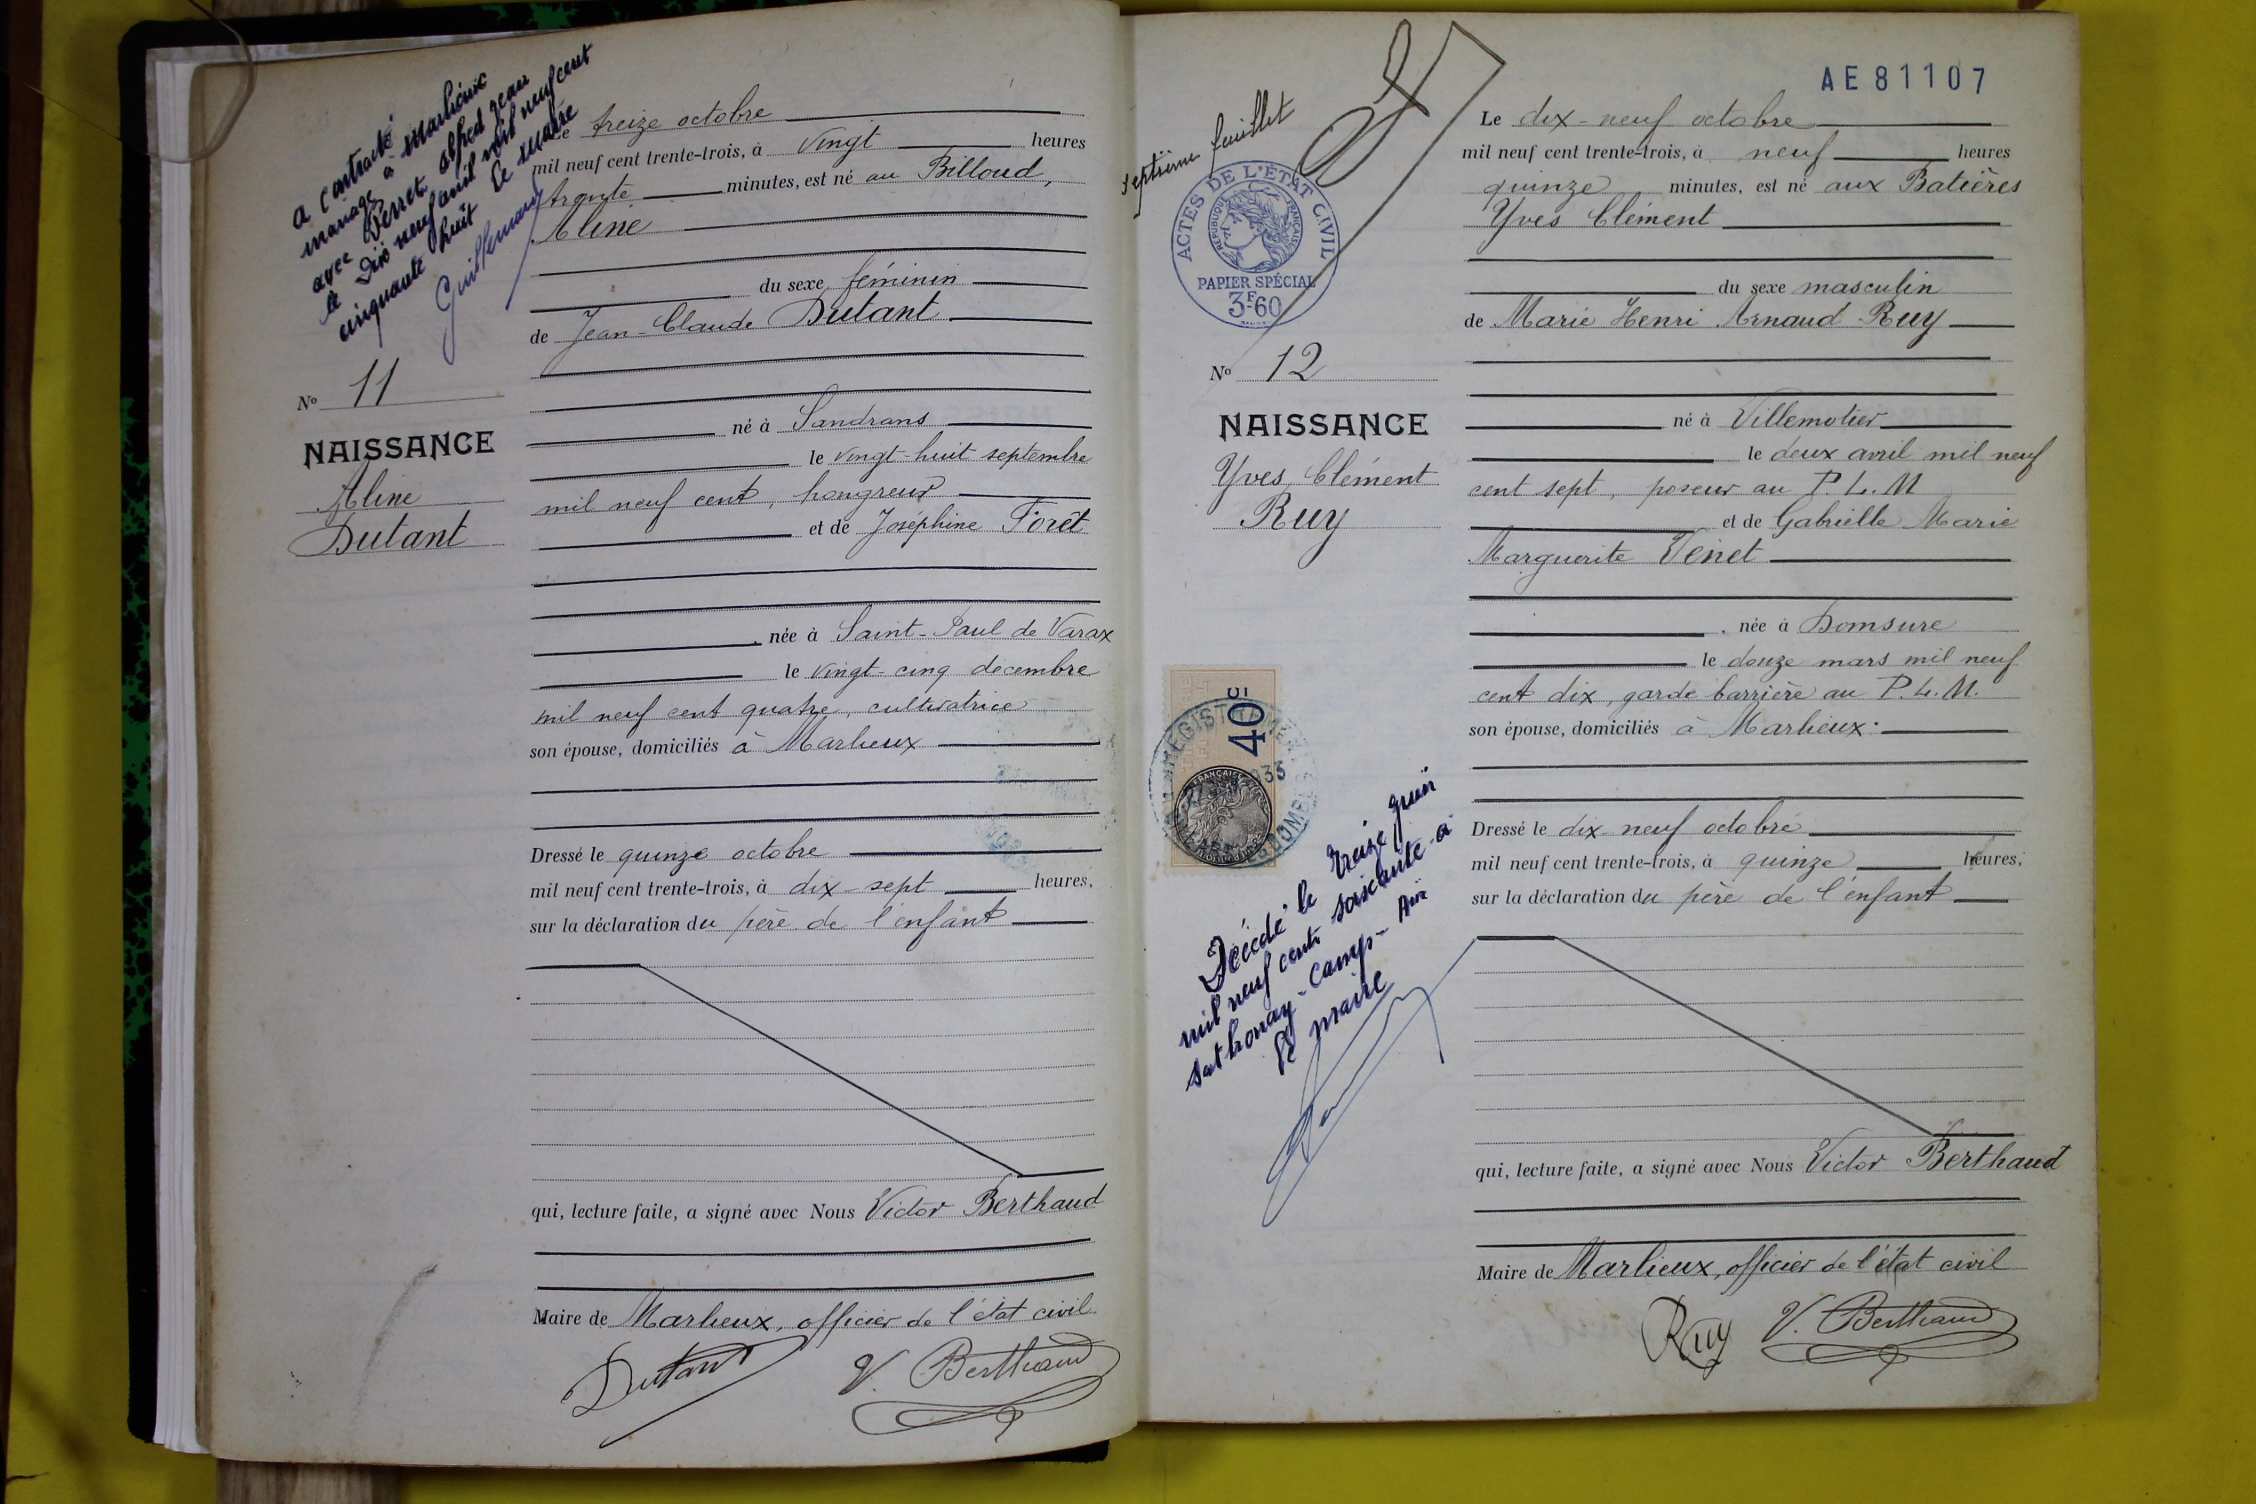 a contracté
mariage à Marlieux
avec Perret alfred jean
le Dix neuf avril mil neuf cent
cinquante huit le maire
Le treize octobre
mil neuf cent trente-trois, à vingt heures
trente minutes, est né au Billoud,
Aline
du sexe féminin
de Jean-Claude Dutant
Nº 11
NAISSANCE
Aline
Dutant
né à Sandrans
le vingt-huit septembre
mil neuf cent, hongreur
et de Joséphine Forêt
née à Saint-Paul de Varax
le vingt-cinq décembre
mil neuf cent quatre, cultivatrice
son épouse, domiciliés à Marlieux
Dressé le quinze octobre
mil neuf cent trente-trois, à dix-sept heures,
sur la déclaration du père de l'enfant
qui, lecture faite, a signé avec Nous Victor Berthaud
Maire de Marlieux, officier de l'état civil
Dutant V. Berthaud
AE 81107
septième feuillet
ACTES DE L'ÉTAT CIVIL
RÉPUBLIQUE FRANÇAISE
PAPIER SPÉCIAL
3F.60
Le dix-neuf octobre
mil neuf cent trente-trois, à neuf heures
quinze minutes, est né aux Batières
Yves Clément
du sexe masculin
de Marie Henri Arnaud Ruy
Nº 12
NAISSANCE
Yves Clément
Ruy
né à Villemotier
le deux avril mil neuf
cent sept, poseur au P.L.M
et de Gabrielle Marie
Marguerite Venet
née à Domsure
le douze mars mil neuf
cent dix, garde barrière au P.L.M.
son épouse, domiciliés à Marlieux.
40c
Décédé le treize juin
mil neuf cent soixante à
Sathonay-Camp-Ain
le maire
Dressé le dix-neuf octobre
mil neuf cent trente-trois, à quinze heures,
sur la déclaration du père de l'enfant
qui, lecture faite, a signé avec Nous Victor Berthaud
Maire de Marlieux, officier de l'état civil
Ruy V. Berthaud